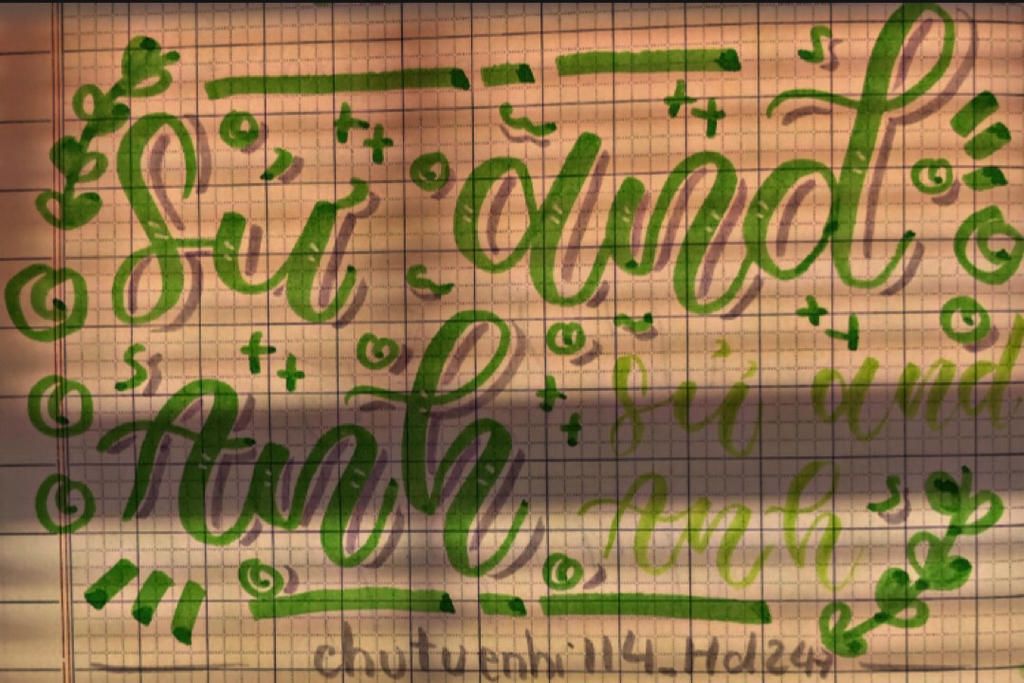 Sú and
Anh
Sú and
Anh
chutuenhi114_Hd247